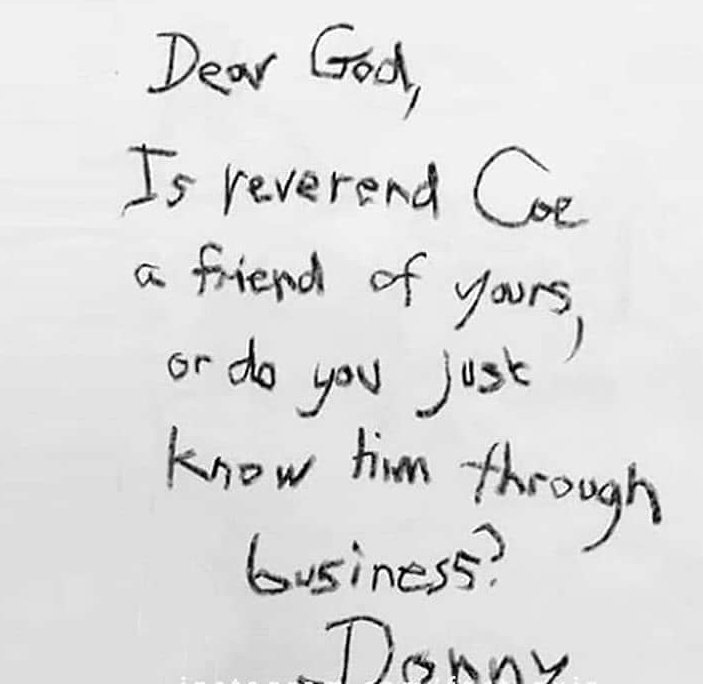 Dear God,
Is reverend Coe
a friend of yours,
or do you just
know him through
business?
Donny